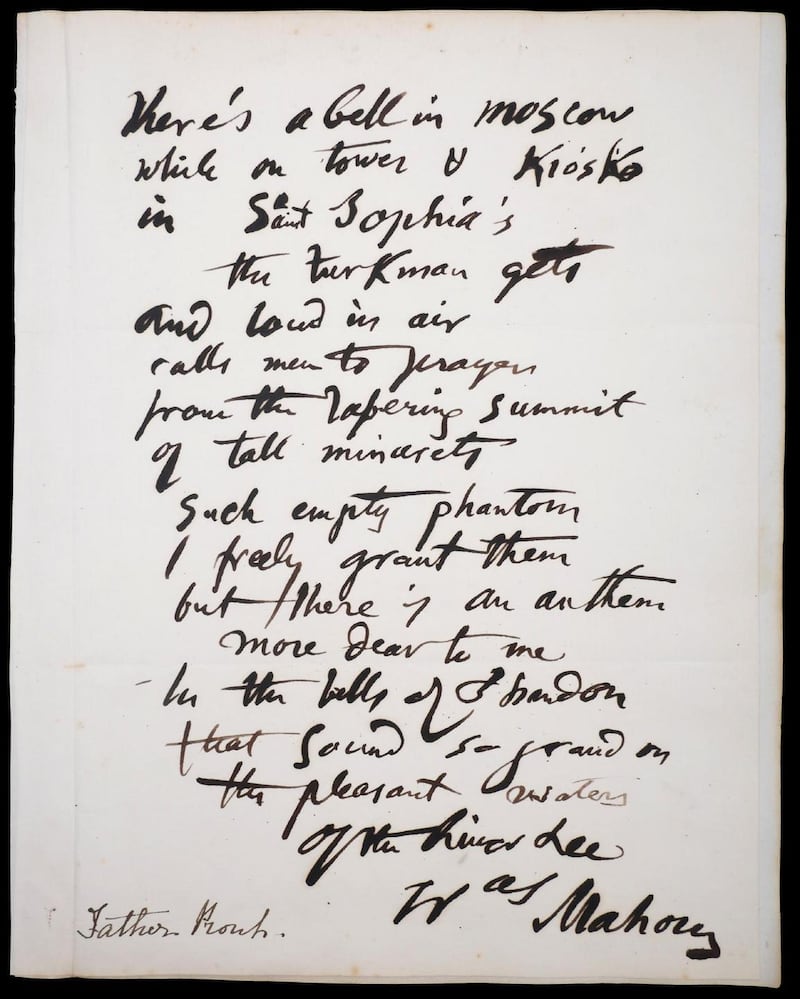 There's a bell in moscow
while on tower & Kiosko
in Saint Sophia's
the turkman gets
and loud in air
calls men to prayer
from the tapering summit
of tall minarets
Such empty phantom
I freely grant them
but there is an anthem
more dear to me
Tis the bells of Shandon
that sound so grand on
the pleasant waters
of the River Lee
Mahony
Father Prout.